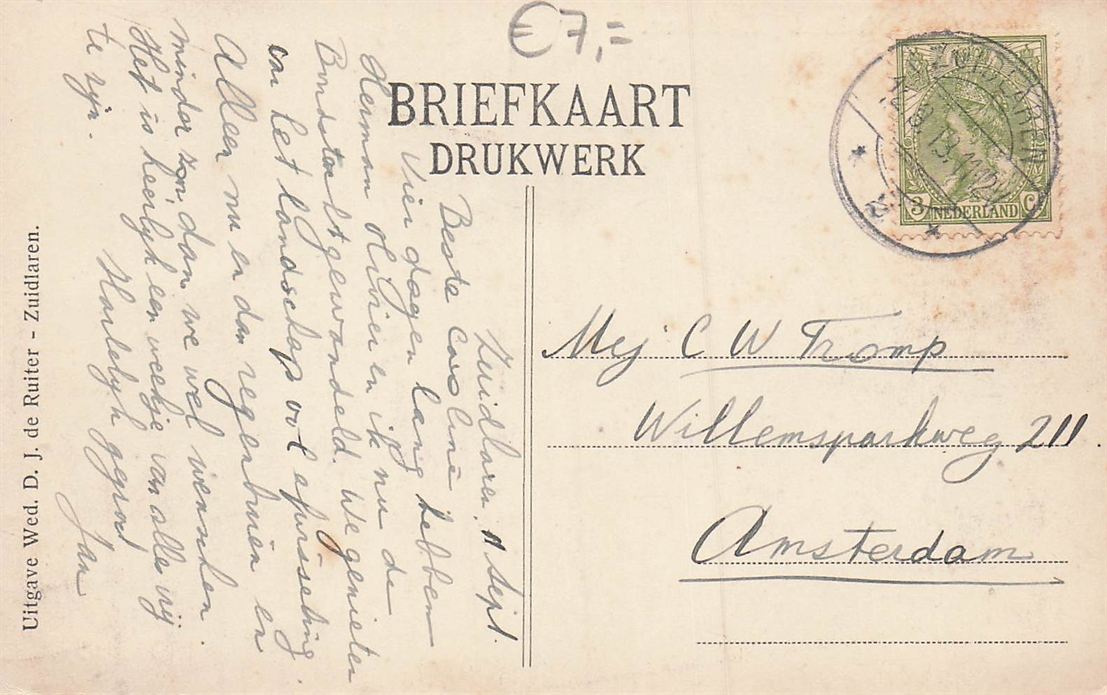 €7,=
BRIEFKAART
DRUKWERK
ZUIDLAREN
3 NEDERLAND Ct
Zuidlaren. 11 Sept.
Beste Caroline
Vier dagen lang hebben
Herman Olivier en ik nu de
Bondstent gewandeld. We genieten
van het landschap vol afwisseling.
Alleen nu en dan regenbuien en
minder zon dan we wel wenschen.
Het is heerlyk een weekje van alles vrij
te zijn.
Hartelyk gegroet
Jan
Mej C W Tromp
Willemsparkweg 211.
Amsterdam
Uitgave Wed. D. J. de Ruiter - Zuidlaren.